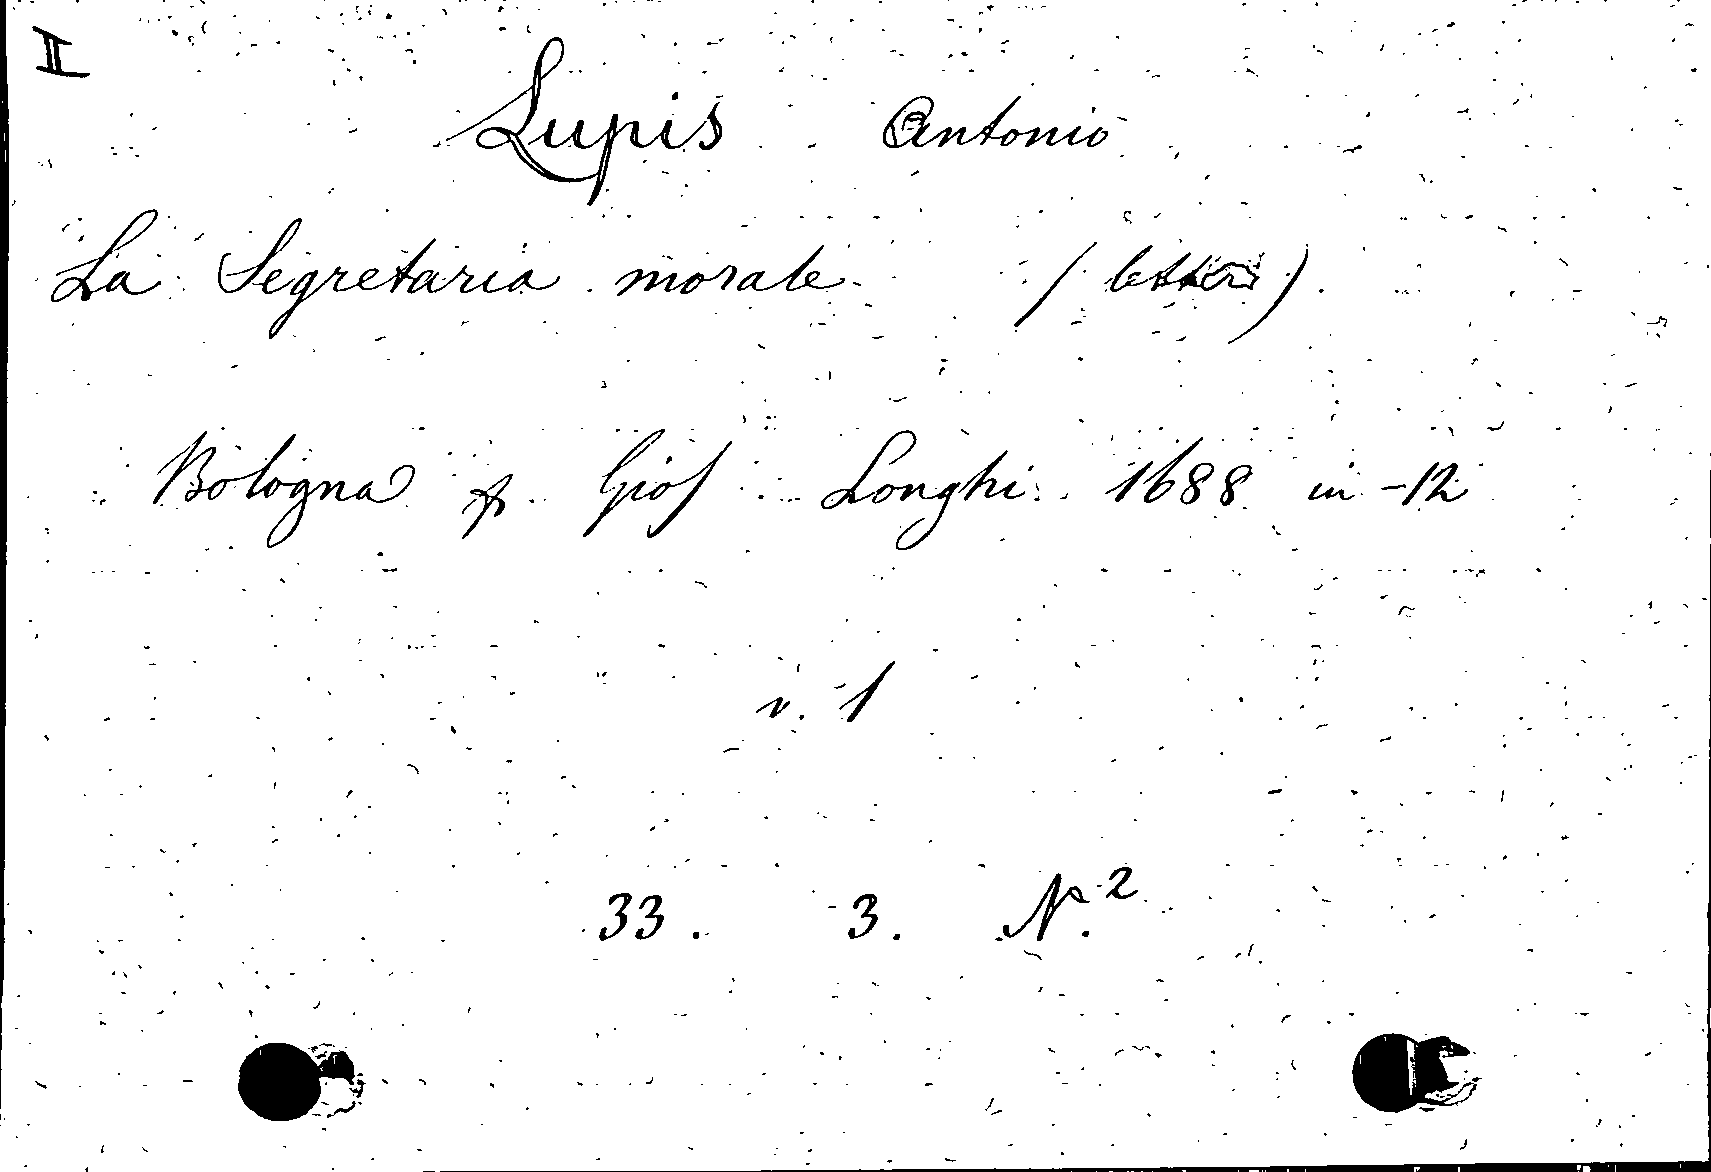 II
Lupis Antonio
La Segretaria morale (lettere)
Bologna p. Gios Longhi 1688 in-12
v. 1
33. 3. N. 2